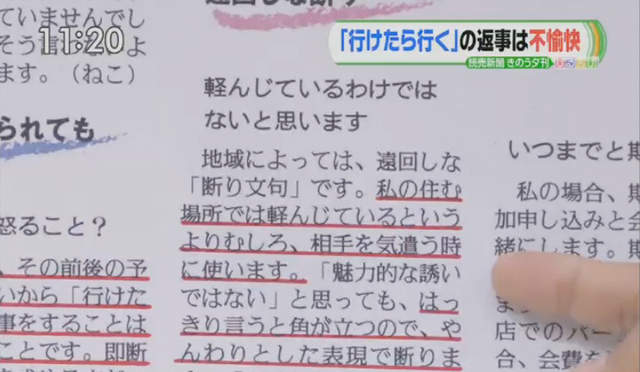 11:20
「行けたら行く」の返事は不愉快
読売新聞 きのう夕刊
いていませんでし
そう言
ます。（ねこ）
られても
怒ること？
、その前後の予
いから「行けた
事をすることは
ことです。即断
遠回しな断り
軽んじているわけでは
ないと思います
地域によっては、遠回しな
「断り文句」です。私の住む
場所では軽んじているという
よりむしろ、相手を気遣う時
に使います。「魅力的な誘い
ではない」と思っても、はっ
きり言うと角が立つので、や
んわりとした表現で断りま
いつまでと期
私の場合、期
加申し込みと会
緒にします。期
ます
店でのパー
合、会費を